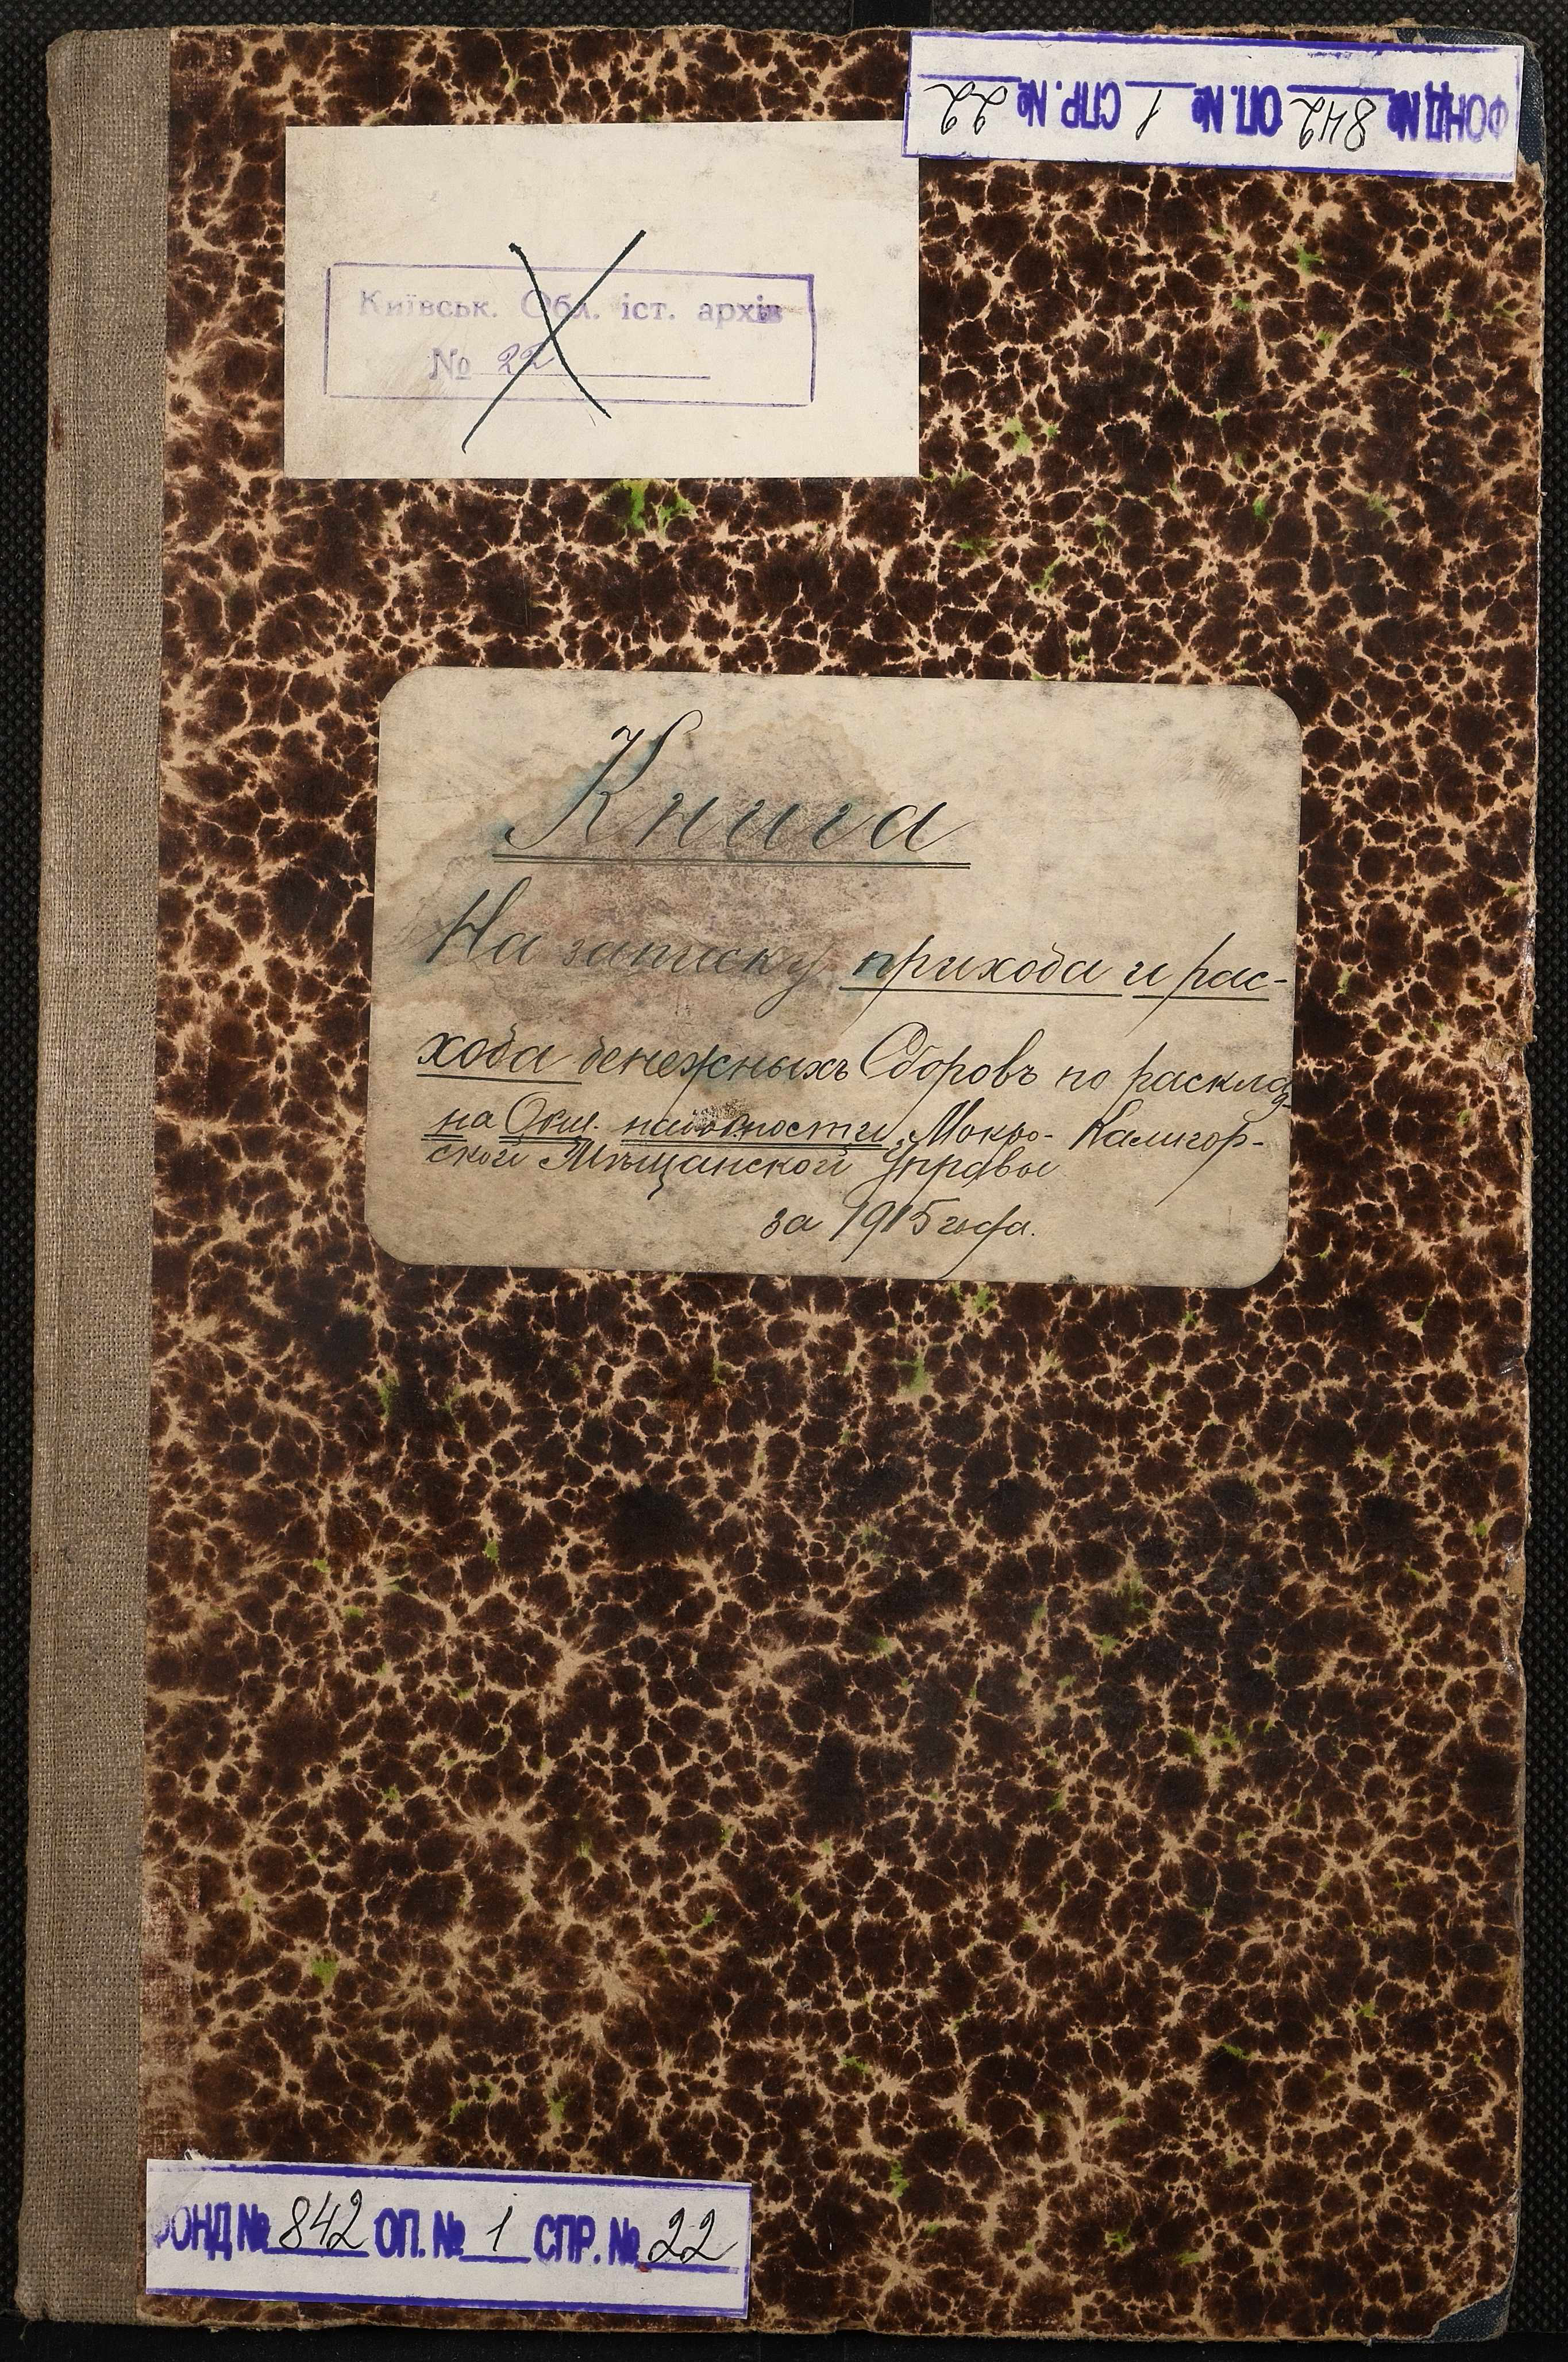 ФОНД № 842 ОП. № 1 СПР. № 22
Київськ. Обл. іст. архів
№ 22
Книга
На записку прихода и рас-
хода денежныхъ Сборовъ по расклад
на Общ. Мокро-Калигор-
ской Мѣщанской Управы
за 1915 года.
ФОНД № 842 ОП. № 1 СПР. № 22